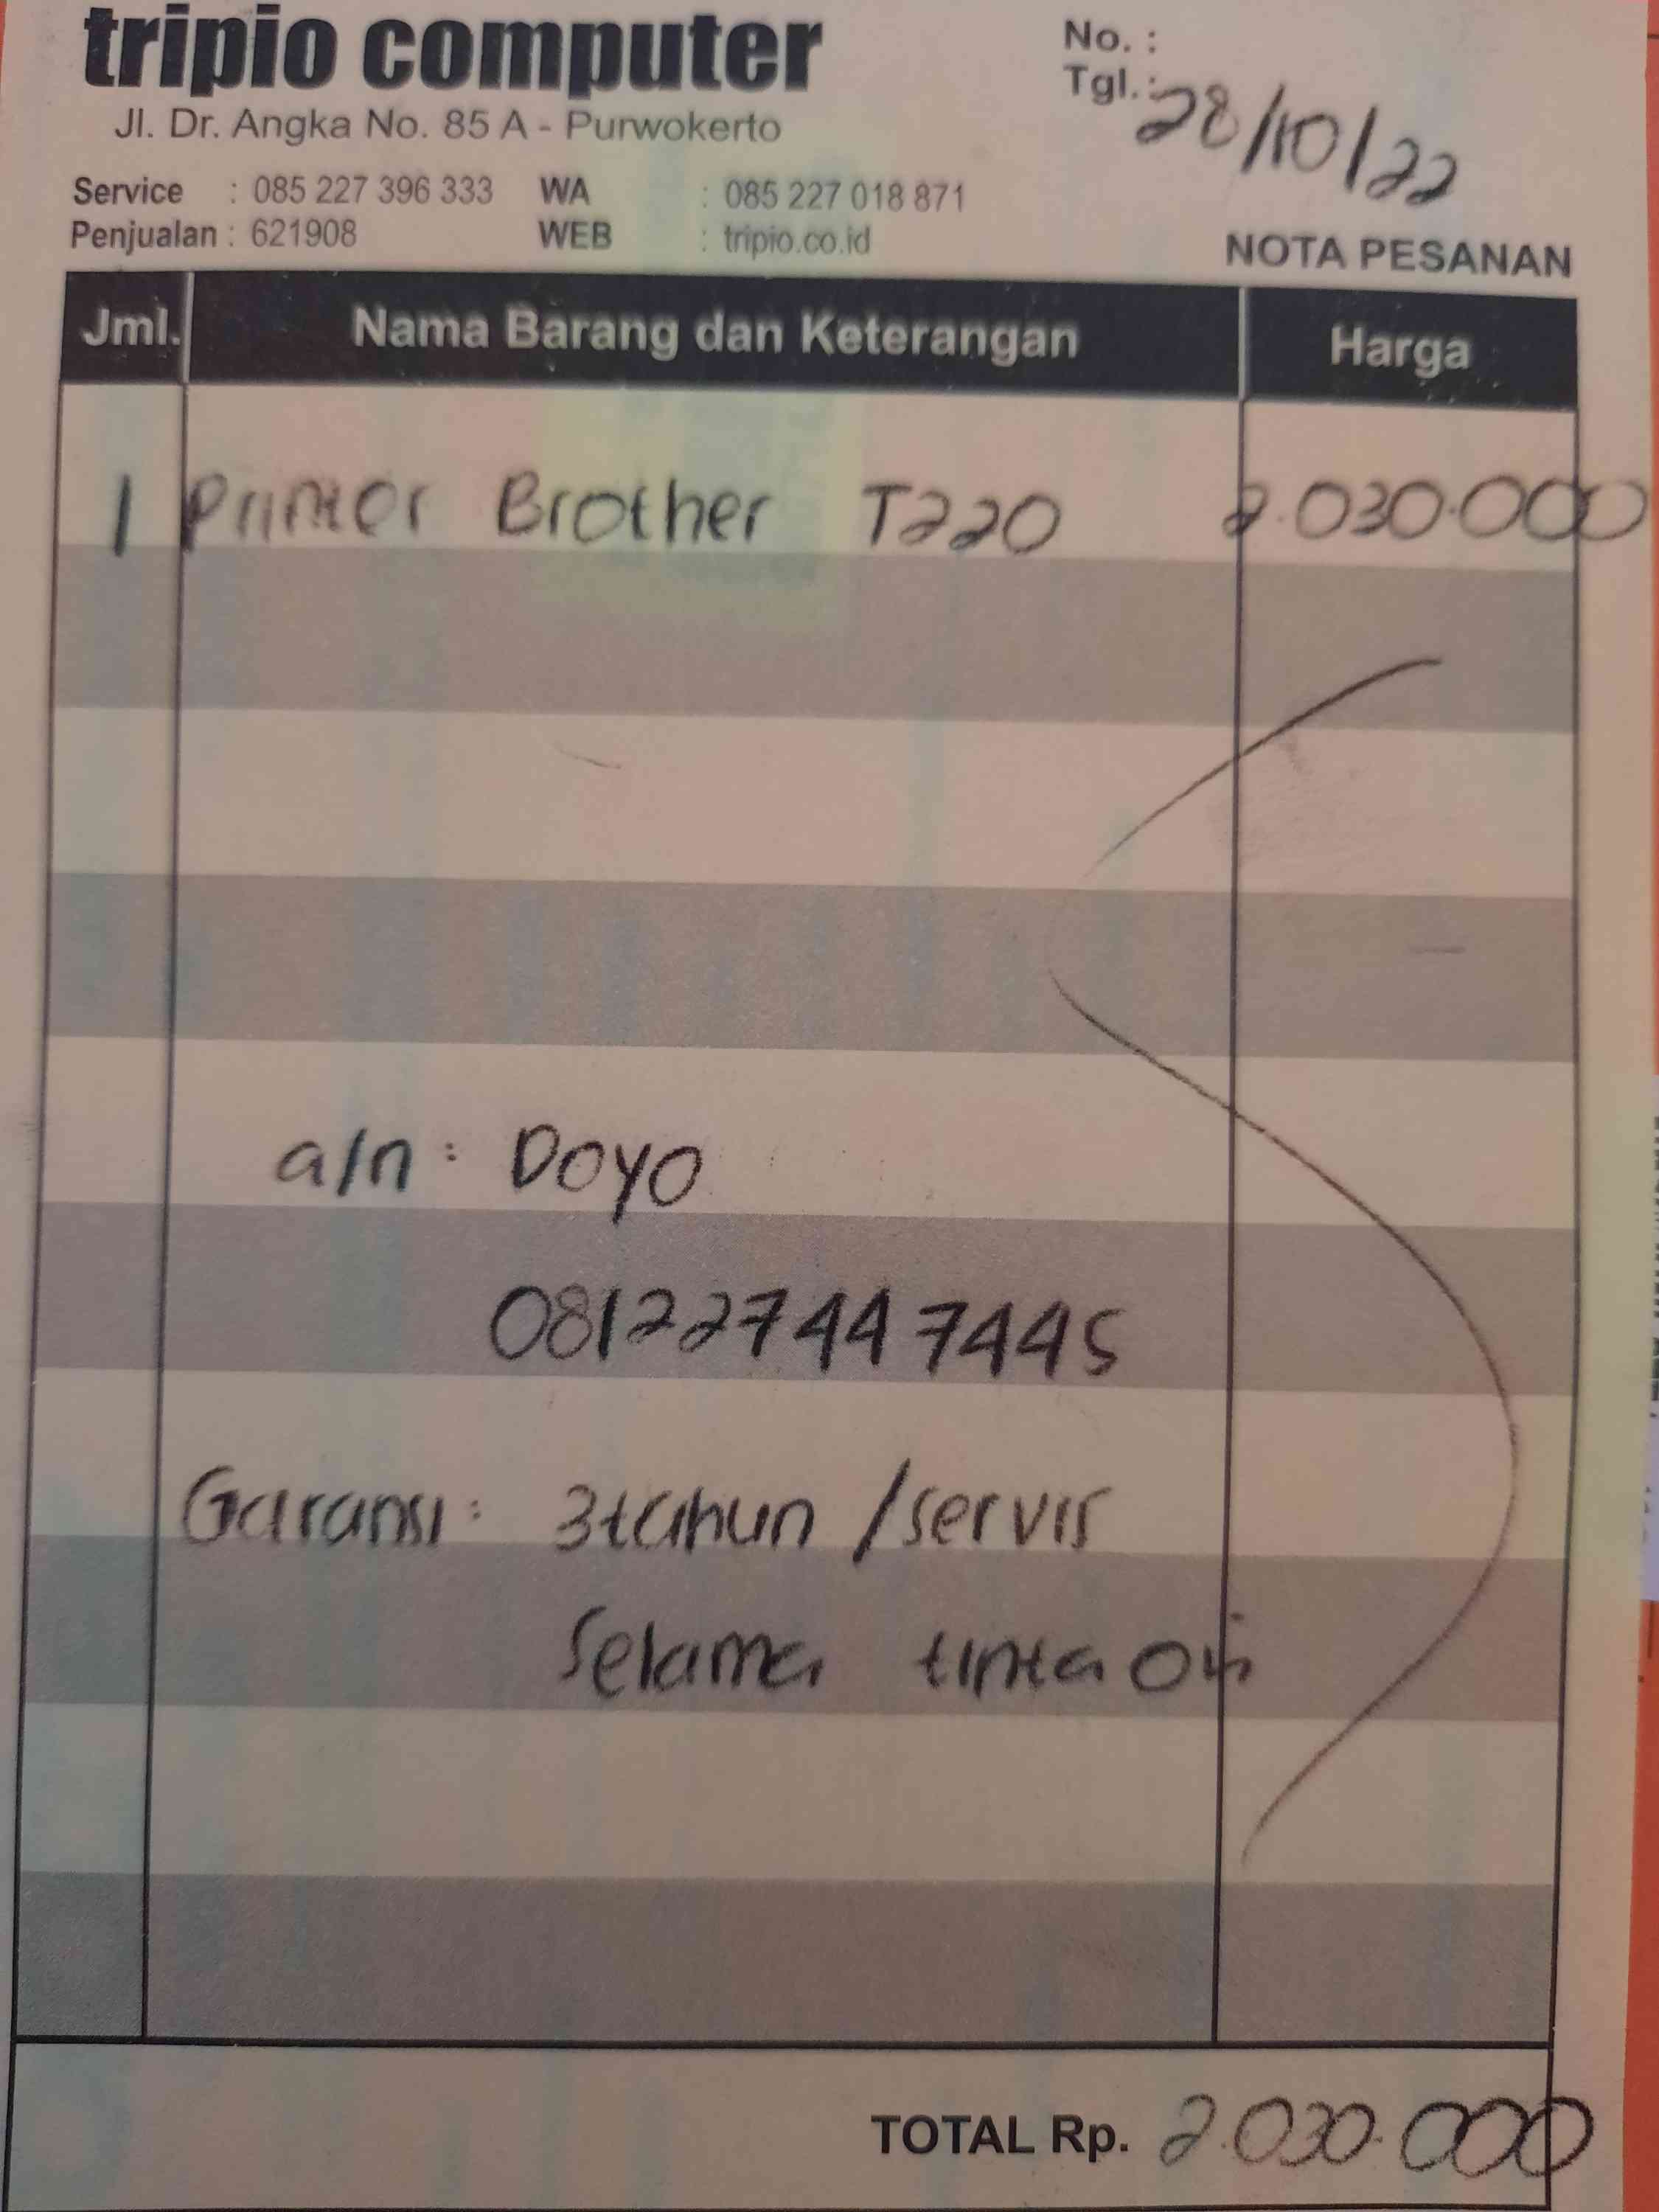 tripio computer
Jl. Dr. Angka No. 85 A - Purwokerto
No. :
Tgl. : 28/10/22
Service : 085 227 396 333 WA : 085 227 018 871
Penjualan : 621908 WEB : tripio.co.id
NOTA PESANAN
Jml. Nama Barang dan Keterangan Harga
1 Printer Brother T220 2.030.000
a/n : Doyo
081227447445
Garansi : 3tahun /servis
Selama tinta ori
TOTAL Rp. 2.030.000